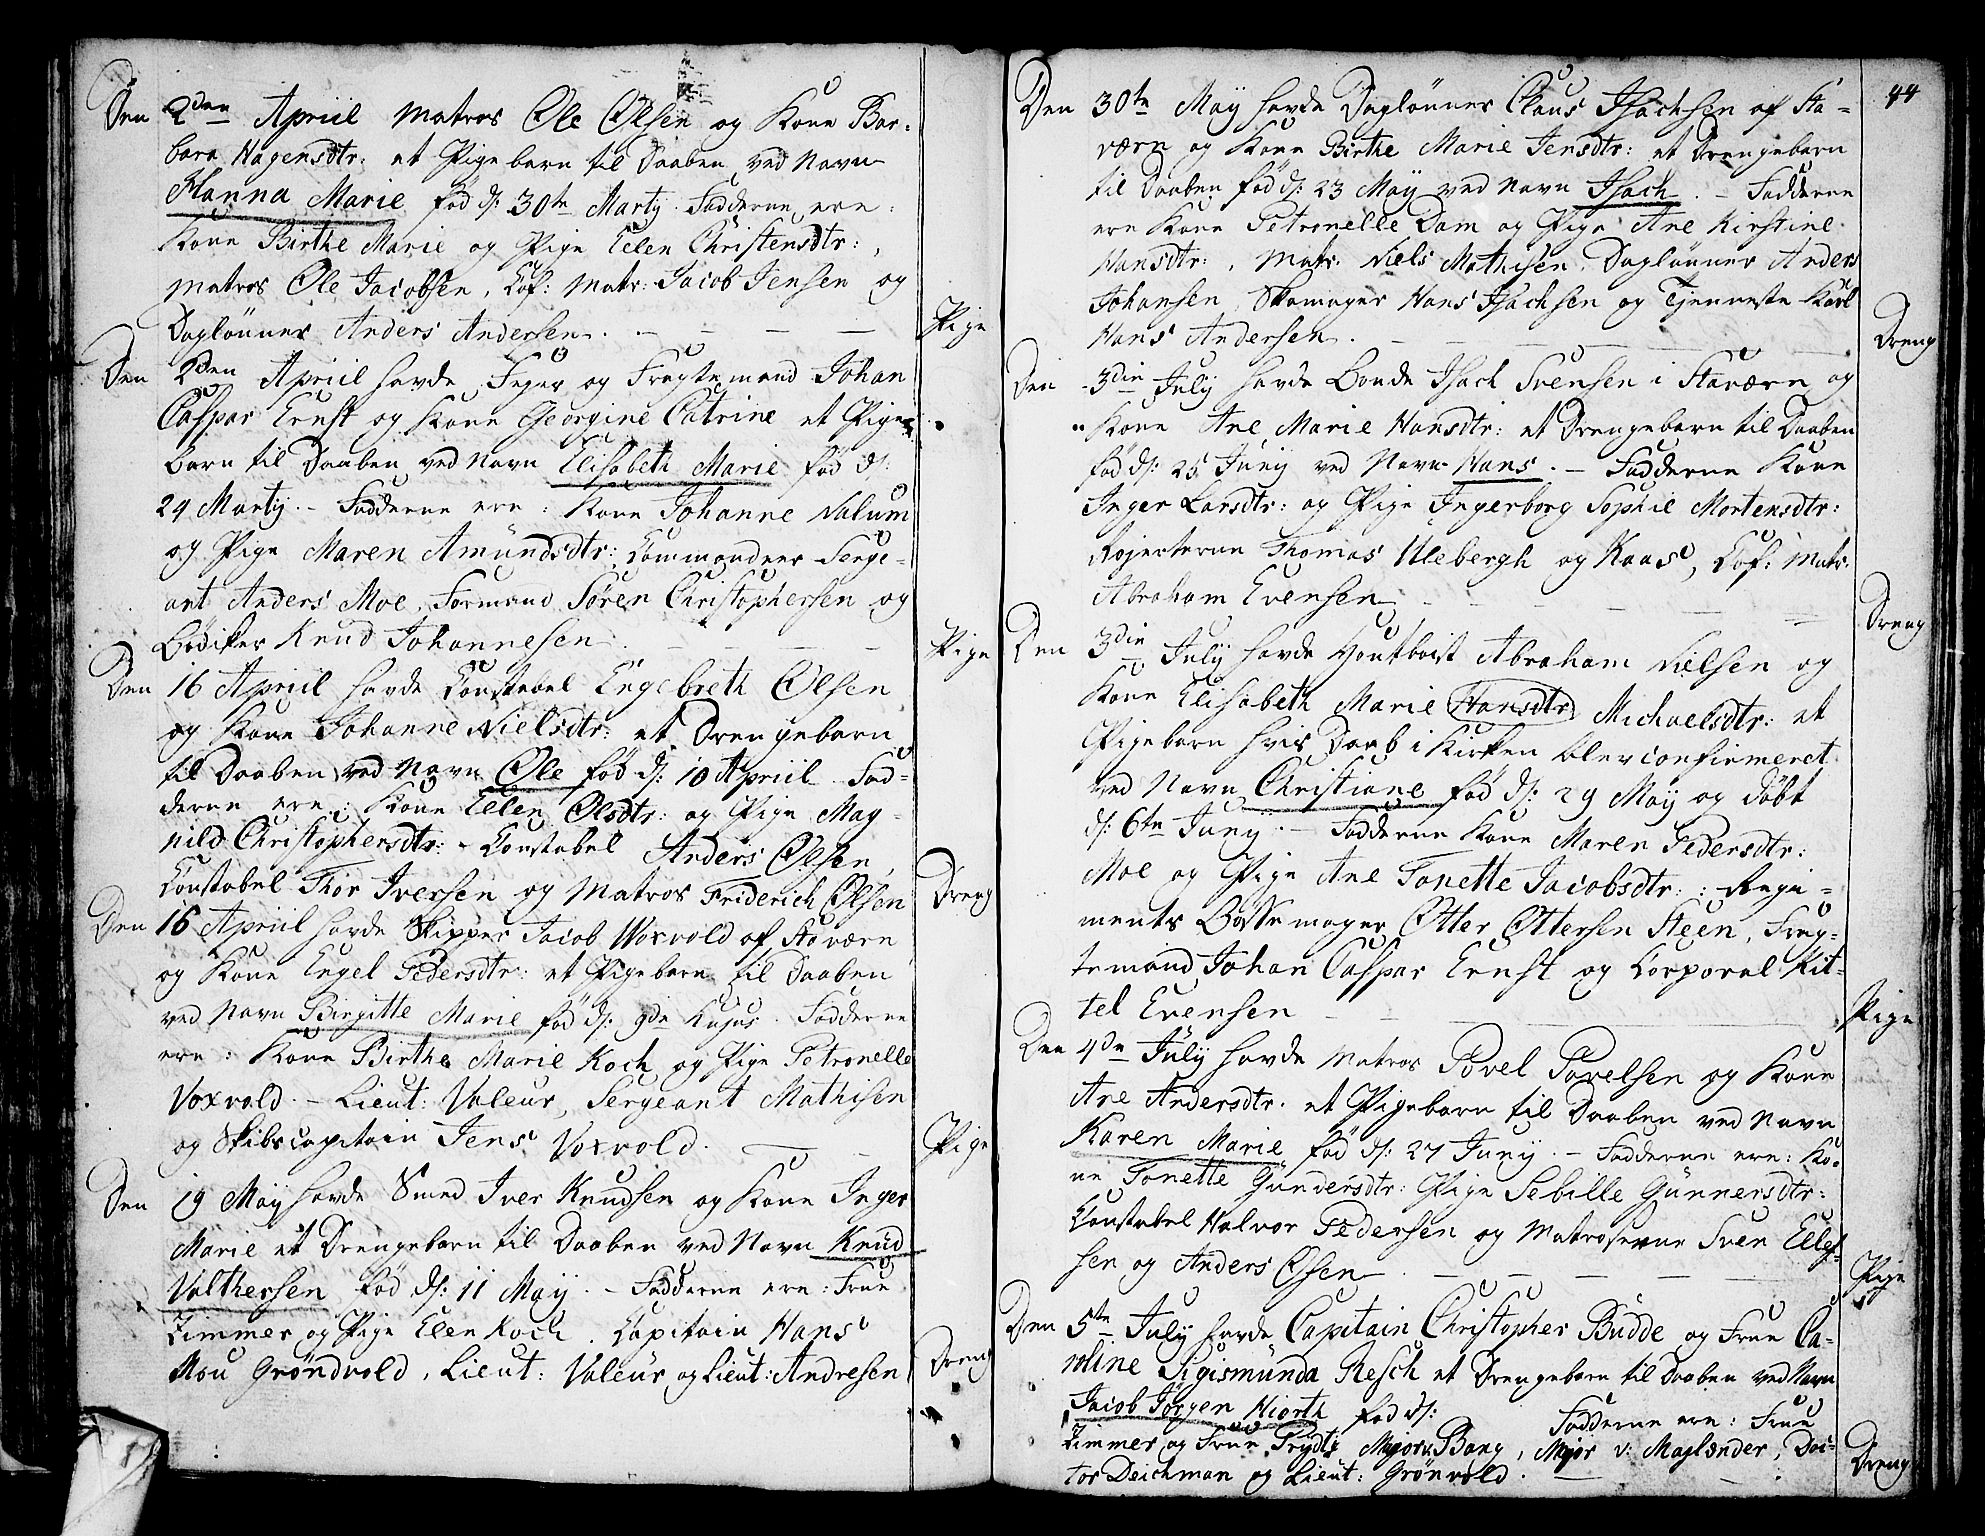 Den 2den Apriil Matros Ole Olsen og Kone Bar:
bara Hagensdtr: et Pigebarn til Daaben ved Navn
Hanna Marie fød d/: 30te Martij. Fadderne ere:
Kone Birthe Marie og Pige Elen Christensdtr:,
Matros Ole Jacobsen, Cof: Matr: Jacob Jensen og
Daglønner Anders Andersen. Pige
Den 2den Apriil havde Fejer og Fragtemand Johan
Caspar Ernst og Kone Georgine Catrine et Pige
barn til Daaben ved Navn Elisabeth Marie fød d/:
24 Martij. – Fadderne ere: Kone Johanne Nalum
og Pige Maren Amundsdtr: Commandeer Serge-
ant Anders Moe, Formand Søren Christophersen og
Bødiker Knud Johannesen Pige
Den 16 Apriil havde Constabel Engebreth Olsen
og Kone Johanne Nielsdtr: et Drengebarn
til Daaben ved Navn Ole fød d/: 10 Apriil Fad-
derne ere: Kone Ellen Olsdtr: og Pige Mag-
nild Christophersdtr: – Constabel Anders Olsen,
Constabel Thor Iversen og Matros Friderich Olsen Dreng
Den 16 Apriil havde Skipper Jacob Woxvold af Staværn
og Kone Engel Pedersdtr: et Pigebarn til Daaben
ved Navn Birgitte Marie fød d/: 9de Hujus. Fadderne
ere: Kone Birthe Marie Koch og Pige Petronelle
Voxvold. – Lieut: Valeur, Sergeant Mathisen
og Skibscapitain Jens Voxvold. Pige
Den 19 May havde Smed Iver Knudsen og Kone Inger
Marie et Drengebarn til Daaben ved Navn Knud
Valthersen fød d/: 11 May. – Fadderne ere: Frue
Zimmer og Pige Elen Koch. Capitain Hans
Nou Grøndvold, Lieut: Valeur og Lieut: Andresen Dreng
44
Den 30te May havde Daglønner Claus Isachsen af Sta-
værn og Kone Birthe Marie Jensdtr: et Drengebarn
til Daaben fød d/: 23 May ved Navn Isach. – Fadderne
ere Kone Petronelle Dam og Pige Ane Kirstine
Hansdtr:, Matr: Niels Mathisen, Daglønner Anders
Johansen, Skomager Hans Isachsen og Tjenneste Karl
Hans Andersen. Dreng
Den 3die July havde Bonde Isach Svensen i Staværn og
Kone Ane Marie Hansdtr: et Drengebarn til Daaben
fød d/: 25 Junij ved Navn Hans. – Fadderne Kone
Inger Larsdtr: og Pige Ingerborg Sophie Mortensdtr:
Rojerterne Thomas Ulebergh og Kaas, Cof: Matr.
Abraham Evensen Dreng
Den 3die July havde Houtboist Abraham Nielsen og
Kone Elisabeth Marie Hansdtr Michaelsdtr: et
Pigebarn hvis Daab i Kirken blev confirmeret
ved Navn Christiane fød d/: 29 May og døbt
d/: 6te Junij. – Fadderne Kone Maren Pedersdtr:
Moe og Pige Ane Tonette Jacobsdtr:: Regi-
ments Bøssemager Otter Ottersen Steen, Frag-
temand Johan Caspar Ernst og Corporal Kit-
tel Evensen Pige
Den 4de July havde Matros Povel Povelsen og Kone
Ane Andersdtr. et Pigebarn til Daaben ved Navn
Karen Marie fød d/: 27 Juny. – Fadderne ere: Ko-
ne Tonette Gundersdtr: Pige Sebille Gunnersdtr:
Constabel Halvor Pedersen og Matroserne Sven Ellef-
sen og Anders Olsen. Pige
Den 5te July havde Capitain Christopher Budde og Frue Ca-
roline Sigismunda Resch et Drengebarn til Daaben ved Navn
Jacob Jørgen Hiorth fød d/: Fadderne ere: Frue
Zimmer og Frue Prydtz Major v: Bang, Major v: Maglander, Doc-
tor Deichman og Lieut: Grønvold. Dreng